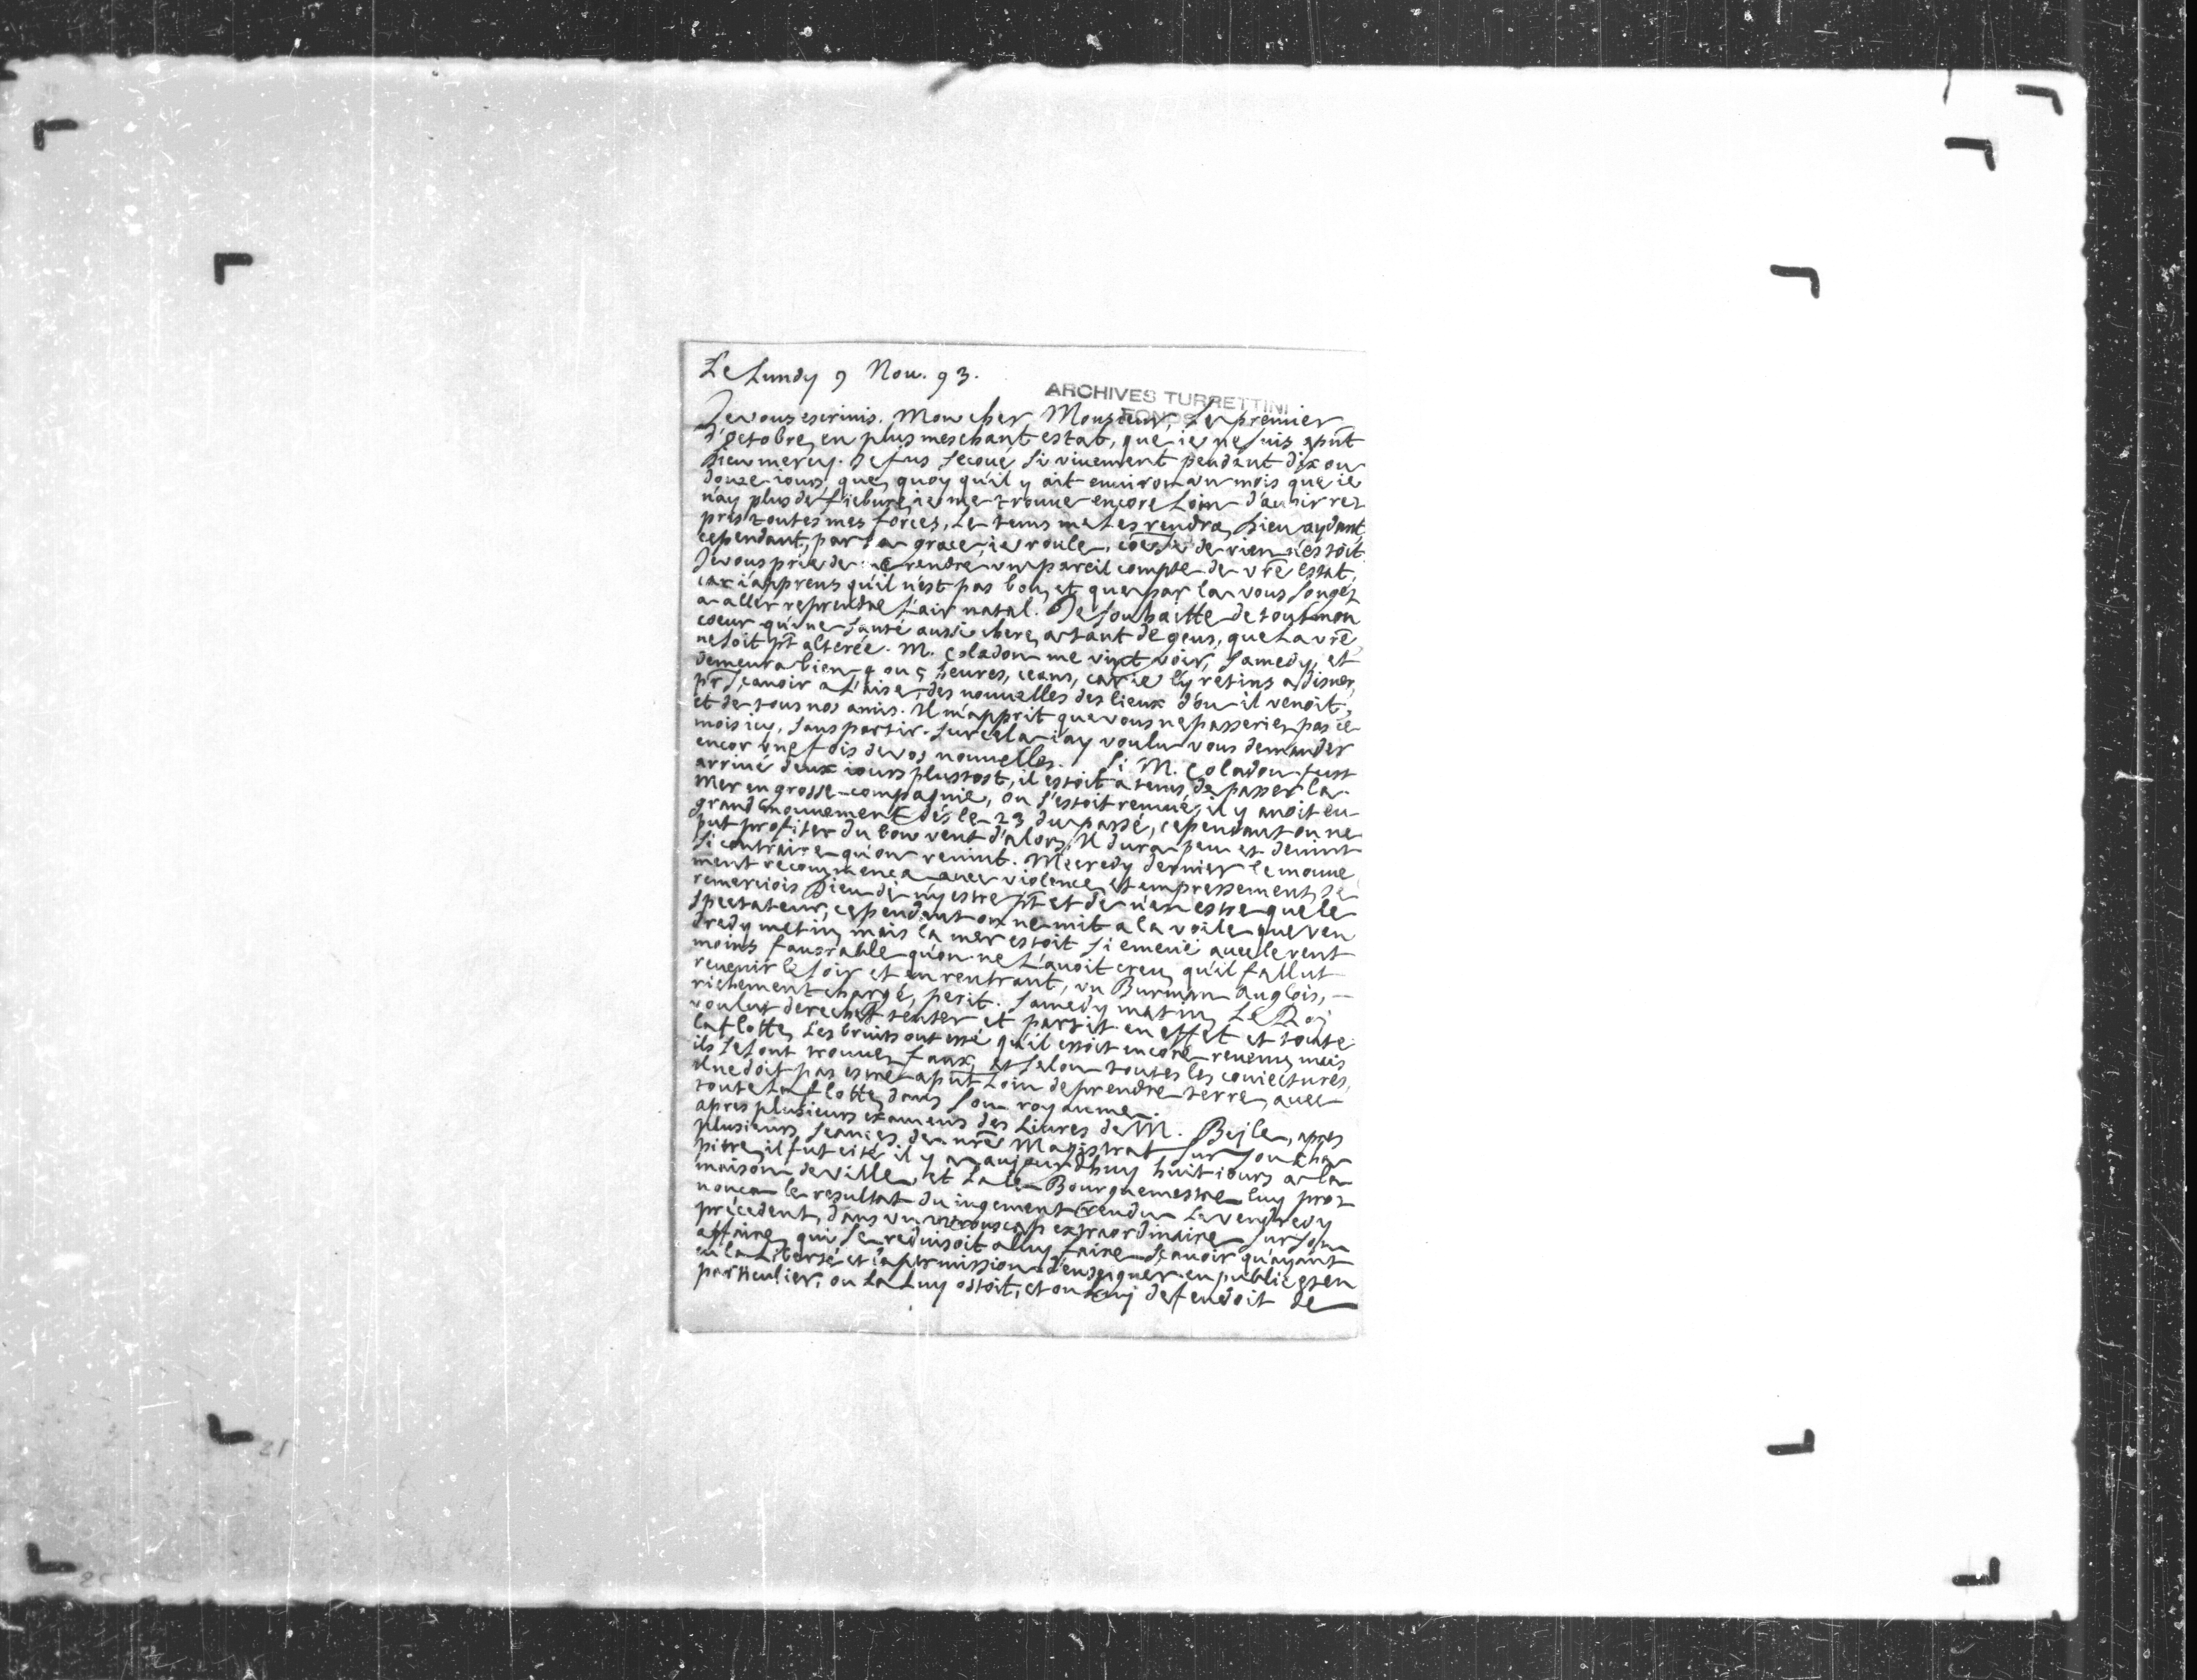 Le Lundy 9 Nou. 93.
ARCHIVES TURRETTINI
FONDS
Je vous escriuis. Mon cher, Monsieur, Le premier
d'octobre, en plus meschant estat, que ie ne suis apñt
Dieu mercy. Je fus secoué si viuement pendant dix ou
douze iours, que, quoy qu'il y ait enuiron vn mois que ie
n'ay plus de fiebure, ie me trouue encore loin d'auoir re=
pris toutes mes forces, Le tems me Les rendra, Dieu aydant,
cependant, par sa grace, ie roule, cõe si de rien n'estoit
Je vous prie de me rendre vn pareil compte de vr̃e estat,
car i'apprens qu'il n'est pas bon, et que par la vous songez
a aller reprendre l'air natal. Je souhaitte de tout mon
coeur qu'vne santé aussi chere, a tant de gens, que La vr̃e
ne soit pñt alterée. M. Coladon me vint voir, samedy, et
demeura bien 4 ou 5 heures, ceans, car ie l'y retins a disner,
pr̃ sçauoir a L'aise, des nouuelles des lieux d'ou il venoit,
et de tous nos amis. Il m'apprit que vous ne passeriez pas ce
mois icy, sans partir. sur cela i'ay voulu vous demander
encor vne fois de vos nouuelles. Si M. Coladon fust
arriué deux iours plustost, il estoit a tems, de passer la
Mer en grosse compagnie, on s'estoit remué, il y auoit eu
grand mouuement dés le 23 du passé, cependant on ne
put profiter du bon vent d'alors, Il dura peu et deuint
si contraire qu'on reuint. Mecredy dernier le mouue
ment recommença auec violence, et empressement, Je
remerciois Dieu de n'y estre pñt et de n'en estre que le
spectateur, cependant on ne mit a la voile que ven
dredy matin, mais la mer estoit si emeüe auec le vent
moins fauorable qu'on ne L'auoit creu, qu'il fallut
reuenir le soir et en rentrant, vn Burman Anglois,
richement chargé, perit. Samedy matin, Le Roy
voulut derechef tenter et partit en effet et toute
la flotte, Les bruits ont esté qu'il estoit encore reuenu, mais
ils se sont trouuez faux, et selon toutes les coniectures,
Il ne doit pas estre apñt Loin de prendre terre, auec
toute La flotte, dans son royaume.
apres plusieurs examens des Liures de M. Beyle, apres
plusieurs seances, de nr̃e Magistrat sur son cha
pitre, il fut cité il y a aujourdhuy huit iours a la
maison de ville, et La le Bourguemestre luy pro=
nonça le resultat du iugement rendu Le vendredy
précedent, dans vn extraordinaire sur son
affaire, qui se reduisoit a luy faire sçauoir qu'ayant
eu la Liberté et la permission d'enseigner en public et en
particulier, on La Luy ostoit, et on Luy defendoit de